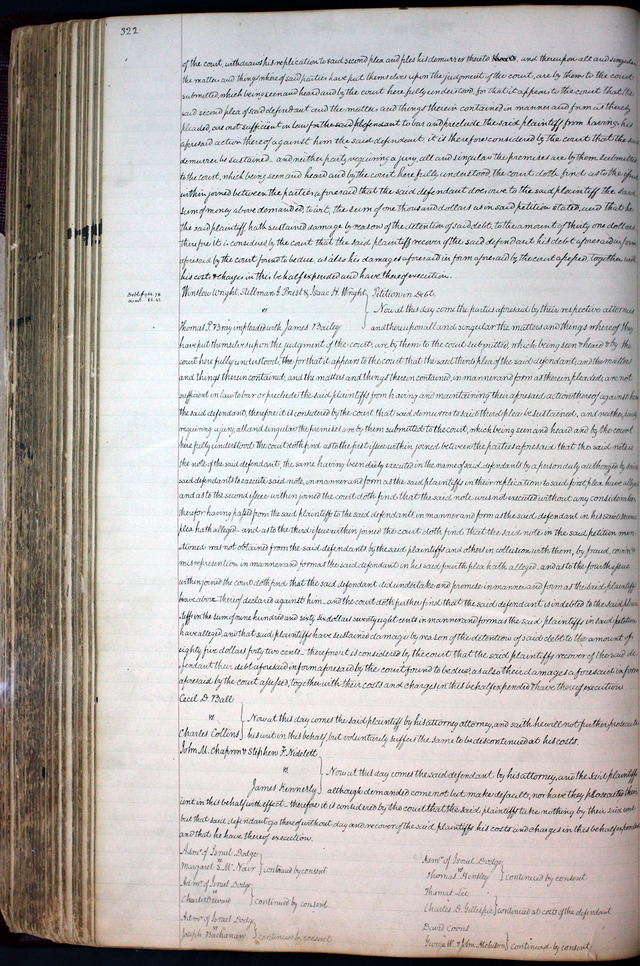 322
of the court, withdraws his replication to said second plea and files his demurrer thereto, and thereupon all and singular
the matter and things where of said parties have put themselves upon the judgment of the court, are by them to the court
submitted, which being seen and heard and by the court here fully understood, for that it appears to the court that the
said second plea of said defendant and the matter and things therein contained in manner and form as therein
pleaded, are not sufficient in law for the said defendant to bar and preclude the said plaintiff from having his
aforesaid action thereof against him the said defendant, it is therefore considered by the court that the said
demurrer be sustained. and neither party requiring a jury, all and singular the premises are by them submitted
to the court, which being seen and heard and by the court here fully understood, the court doth find as to the issue
within joined between the parties aforesaid that the said defendant doth owe to the said plaintiff the said
sum of money above demanded, to wit, the sum of one thousand dollars as in said petition stated, and that he
the said plaintiff hath sustained damage by reason of the detention of said debt, to the amount of thirty one dollars,
therefore it is considered by the court that the said plaintiff recover of the said defendant his debt aforesaid in form
aforesaid by the court found to be due, as also his damages aforesaid in form aforesaid by the court assessed, together with
his costs & charges in this behalf expended and have thereof execution.
Winslow Wright, Stillman J. Priest & Isaac H. Wright } Petition in Debt.
vs Now at this day come the parties aforesaid by their respective attornies
Thomas P. Bray impleaded with James Bailey and thereupon all and singular the matters and things whereof they
have put themselves upon the judgment of the court, are by them to the court submitted, which being seen & heard & by the
court here fully understood, for that it appears to the court that the said third plea of the said defendant, and the matters
and things therein contained, and the matters and things therein contained, in manner and form as therein pleaded, are not
sufficient in law to bar or preclude the said plaintiffs from having and maintaining their aforesaid action thereof against him
the said defendant, therefore it is considered by the court that said demurrer to said third plea be sustained, and neither party
requiring a jury, all and singular the premises are by them submitted to the court, which being seen and heard and by the court
here fully understood the court doth find as to the first issue within joined between the parties aforesaid that the said note is
the note of the said defendant, the same having been duly executed in the name of said defendants by a person duly authorized by said
said defendants to execute said note, in manner and form as the said plaintiffs in their replication to said first plea have alleged
and as to the second issue within joined the court doth find that the said note was not executed without any consideration
therefor having passed from the said plaintiffs to the said defendants in manner and form as the said defendant in his said second
plea hath alleged. and as to the third issue within joined the court doth find that the said note in the said petition men-
tioned was not obtained from the said defendants by the said plaintiffs and others in collusion with them, by fraud, covin &
misrepresention in manner and form as the said defendant in his said fourth plea hath alleged, and as to the fourth issue
within joined the court doth find that the said defendant did undertake and promise in manner and form as the said plaintiffs
have above thereof declared against him. and the court doth further find that the said defendant is indebted to the said plain-
tiffs in the sum of one hundred and sixty six dollars seventy eight cents in manner and form as the said plaintiffs in said petition
have alleged, and that said plaintiffs have sustained damage by reason of the detention of said debt to the amount of
eighty five dollars forty two cents. therefore it is considered by the court that the said plaintiffs recover of the said de-
fendant their debt aforesaid in form aforesaid by the court found to be due, as also their damages aforesaid in form
aforesaid by the court assessed, together with their costs and charges in this behalf expended & have thereof execution
Cecil D. Ball
vs Now at this day comes the said plaintiff by his attorney attorney, and saith he will not further prosecute
Charles Collins } his writ in this behalf, but voluntarily suffers the same to be discontinued at his costs.
John M. Chapron & Stephen F. Nidelett
vs Now at this day comes the said defendant by his attorney, and the said plaintiffs
James Kennerly } although demanded come not but make default, nor have they prosecuted their
suit in this behalf with effect. therefore it is considered by the court that the said plaintiffs take nothing by their said writ
but that said defendant go thereof without day and recover of the said plaintiffs his costs and charges in this behalf expended
and that he have thereof execution.
Admr of Israel Dodge
vs
Margaret S. McNair } continued by consent
Admr of Israel Dodge
vs
Charles } continued by consent
Admr of Israel Dodge
vs
Joseph Buchanan } continued by consent
Admr of Israel Dodge
vs
Thomas Hensley } continued by consent
Thomas Lee
vs
Charles D. Gillespie } continued at costs of the defendant
David Coons
vs
George W. & John } continued by consent